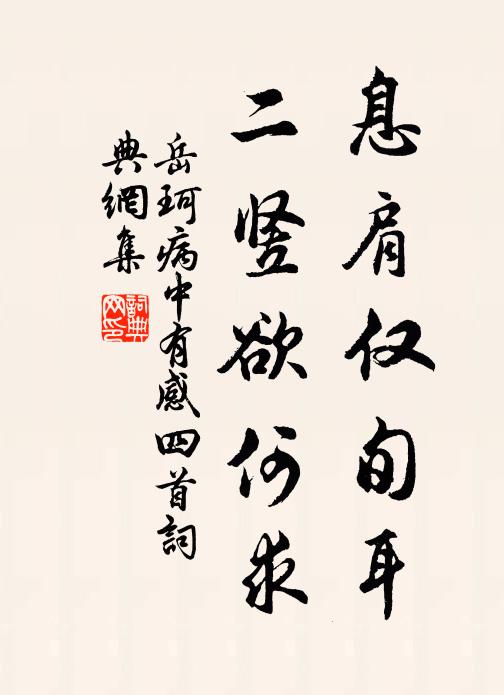 息肩仅旬耳
二竖欲何求
岳珂病中有感四首詞
典網集
詞典网印